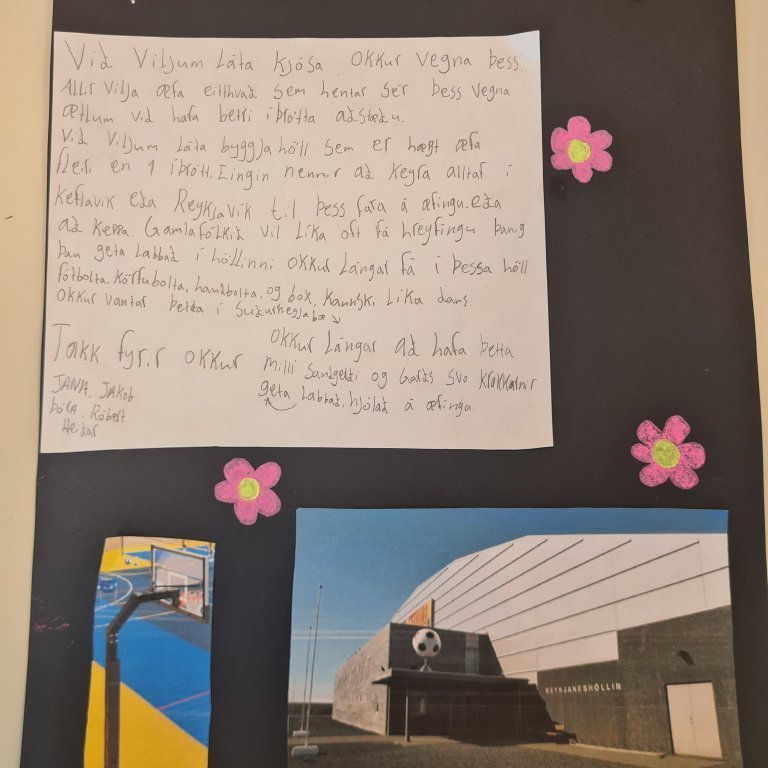 Við Viljum Láta kjósa okkur vegna þess
Allir Vilja æfa eitthvað sem hentar sér þess vegna
ætlum við hafa betri íþrótta aðstæðu.
Við Viljum Láta byggja höll sem er hægt æfa
fleiri en 1 íþrótt. Eingin nennir að keyra alltaf í
Keflavík eða Reykjavík til þess fara á æfingu. eða
að keppa. Gamlafólkið vil líka oft fá hreyfingu þanig
þau geta Labbað í höllinni. okkur Lángar fá í þessa höll
fótbolta, körfubolta, handbolta, og box, kannski Líka dans
okkur vantar þetta í suðurnesjabæ
okkur Lángar að hafa þetta
milli Sandgerði og Garðs svo krakkarnir
geta Labbað, hjólað á æfingu.
Takk fyrir okkur
JANA, JAKob
Þóra, Róbert
Heiðar
REYKJANESHÖLLIN